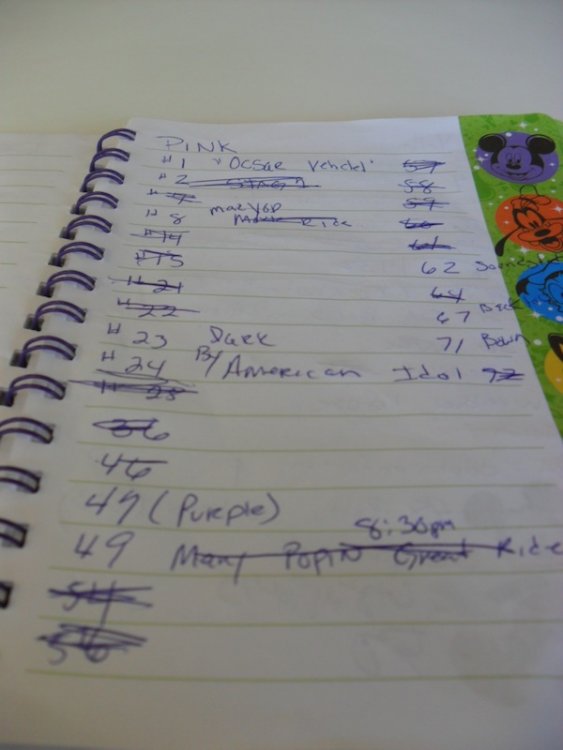 PINK
#1 "Ocsar Vehclel" 57
#2 58
#7 59
#8 maryop Ride 60
#14 61
#15 62
#21 64
#22 67 Back
#23 Dark 71
#24 By American Idol 72
#25
36
46
49 (Purple)
8:30pm
49 Mary Popin Great Ride
54
56